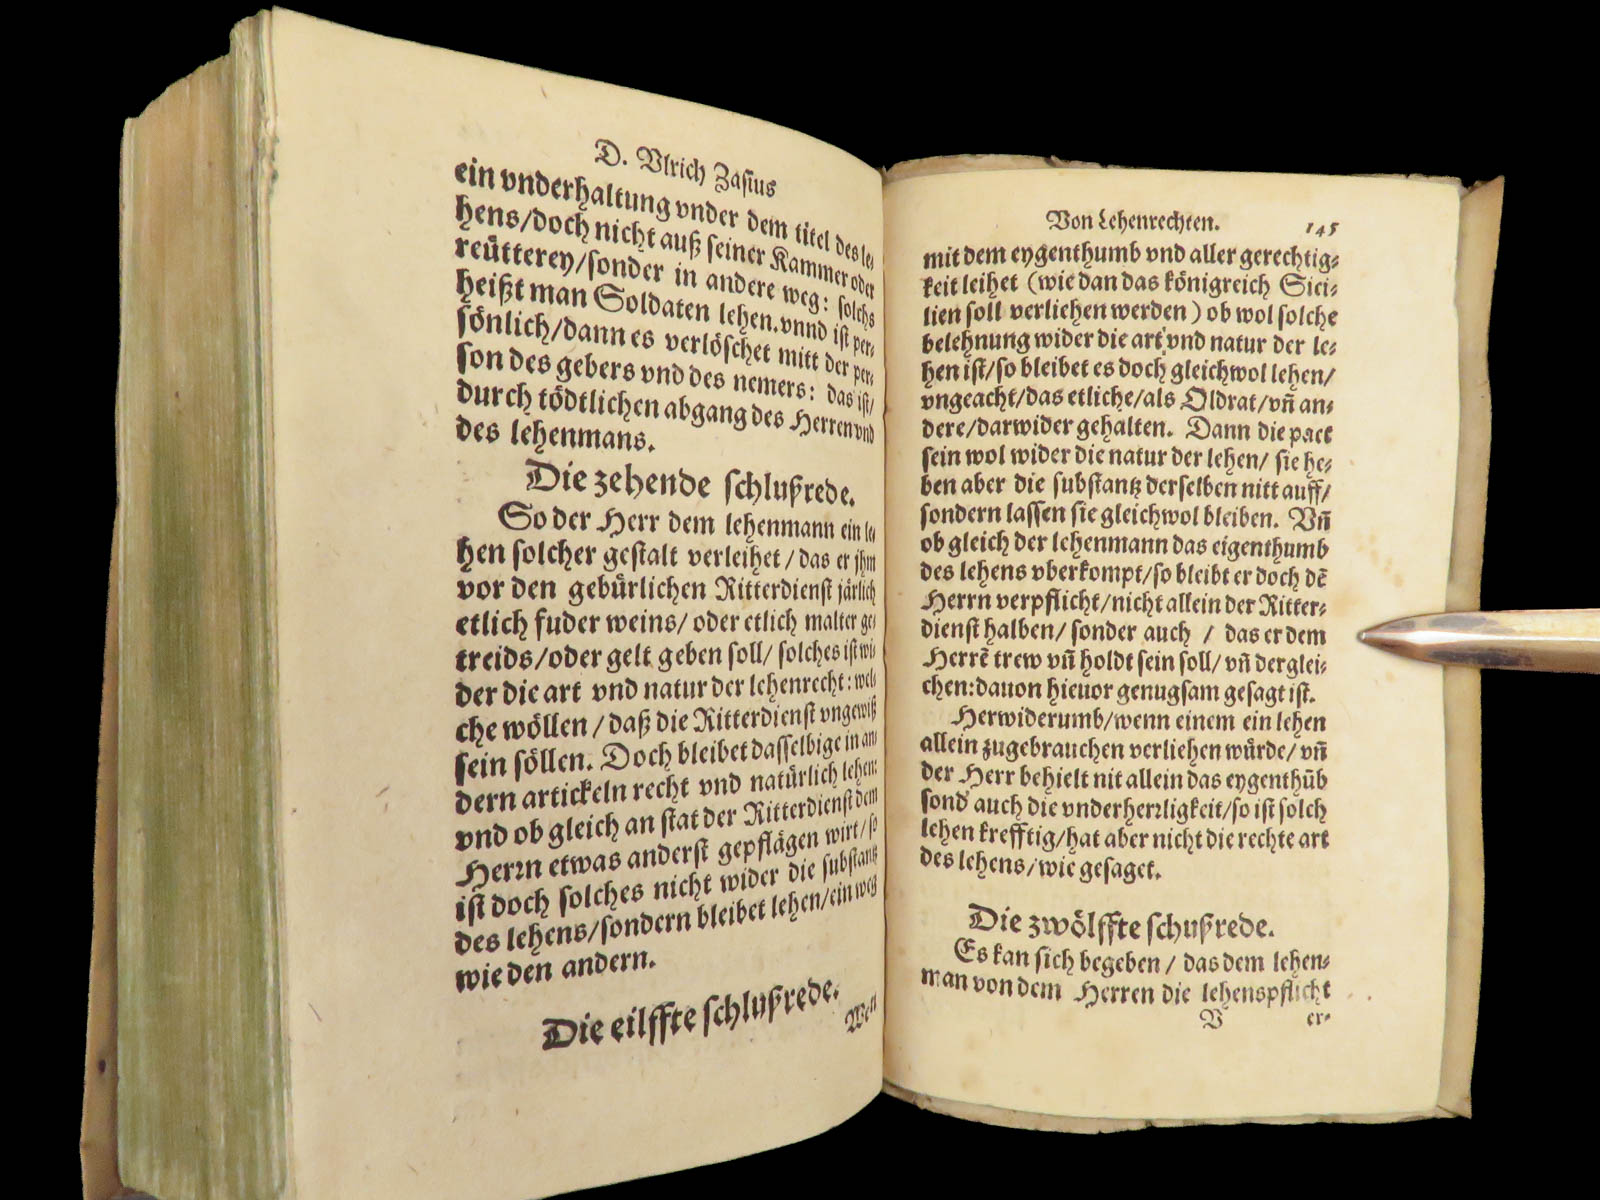 D. Vlrich Zasius
ein vnderhaltung vnder dem titel des le-
hens/doch nicht auß seiner Kammer oder
reütterey/sonder in andere weg: solchs
heißt man Soldaten lehen. vnnd ist per-
sönlich/dann es verlöschet mitt der per-
son des gebers vnd des nemers: das ist/
durch tödtlichen abgang des Herren vnd
des lehenmans.
Die zehende schlußrede.
So der Herr dem lehenmann ein le-
hen solcher gestalt verleihet/ das er jhm
vor den gebürlichen Ritterdienst järlich
etlich fuder weins/ oder etlich malter ge-
treids/oder gelt geben soll/ solches ist wi-
der die art vnd natur der lehenrecht: wel-
che wöllen/ daß die Ritterdienst vngewiß
sein söllen. Doch bleibet dasselbige in an-
dern artickeln recht vnd natürlich lehen:
vnd ob gleich an stat der Ritterdienst dem
Herrn etwas anderst gepflägen wirt/ so
ist doch solches nicht wider die substantz
des lehens/sondern bleibet lehen/ein weg
wie den andern.
Die eilffte schlußrede.
Wen
Von Lehenrechten. 145
mit dem eygenthumb vnd aller gerechtig-
keit leihet (wie dan das königreich Sici-
lien soll verliehen werden) ob wol solche
belehnung wider die art vnd natur der le-
hen ist/so bleibet es doch gleichwol lehen/
vngeacht/das etliche/als Oldrat/vñ an-
dere/darwider gehalten. Dann die pact
sein wol wider die natur der lehen/ sie he-
ben aber die substantz derselben nitt auff/
sondern lassen sie gleichwol bleiben. Vñ
ob gleich der lehenmann das eigenthumb
des lehens vberkompt/so bleibt er doch dē
Herrn verpflicht/nicht allein der Ritter-
dienst halben/ sonder auch / das er dem
Herrē trew vñ holdt sein soll/ vñ derglei-
chen: dauon hieuor genugsam gesagt ist.
Herwiderumb/wenn einem ein lehen
allein zugebrauchen verliehen würde/ vñ
der Herr behielt nit allein das eygenthūb
sond' auch die vnderherrligkeit/so ist solch
lehen krefftig/hat aber nicht die rechte art
des lehens/wie gesaget.
Die zwölffte schußrede.
Es kan sich begeben/ das dem lehen-
man von dem Herren die lehenspflicht
V er-